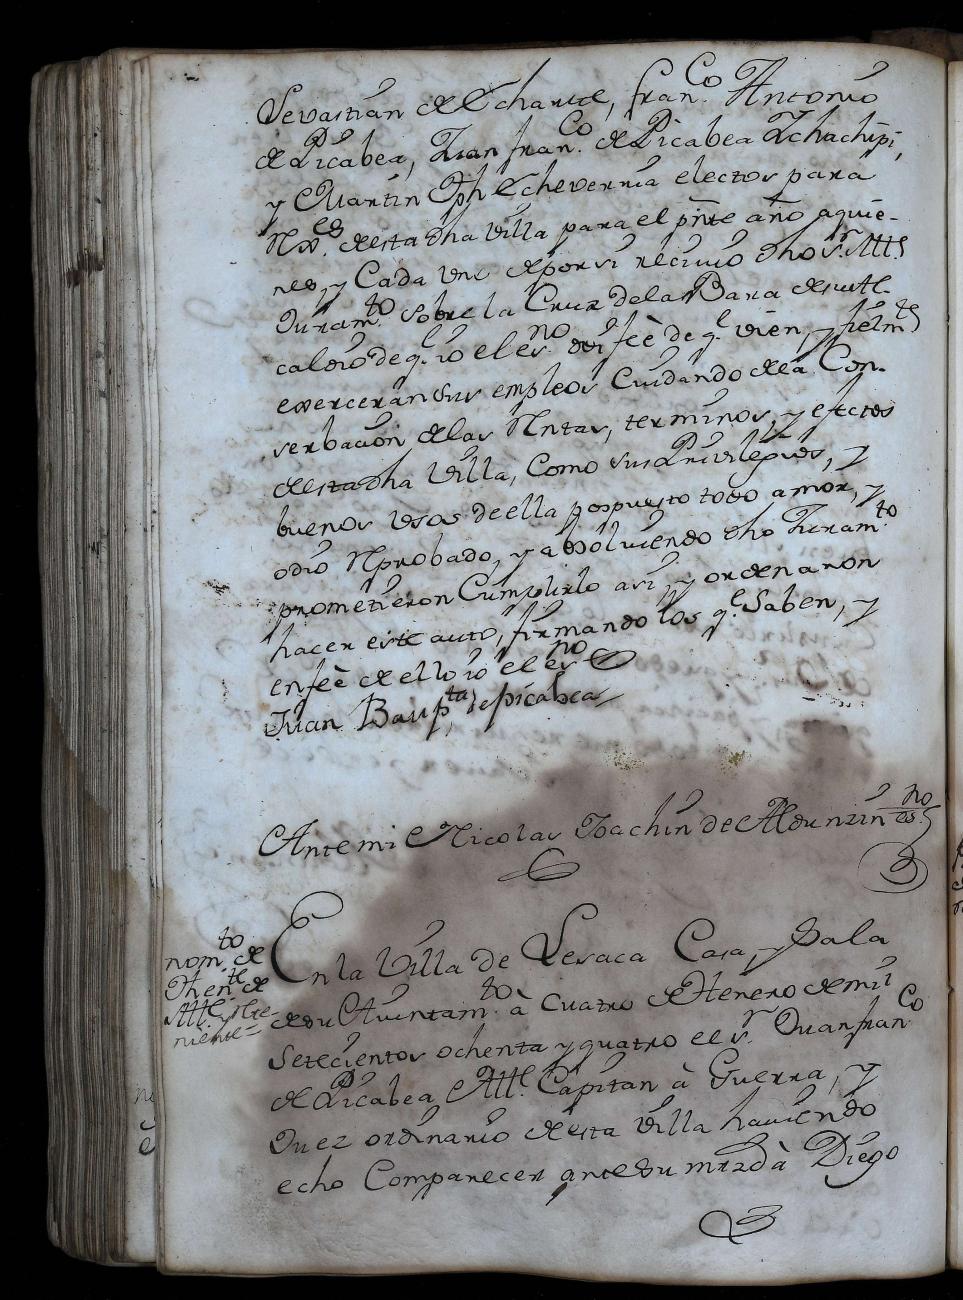 Sevastian de Echarte, fran.co Antonio
de Picabea, Juan fran.co de Picabea Ychachipi,
y Martin Jph Echeverria elector para
Rx.es desta dha villa para el pñte año aquie-
nes, y Cada uno depor si recivio dho S.r Alld
Juram.to Sobre la Cruz dela Bara desutl.
caldio de q.l io el es.no doi feè de q.l vien, y fielm.te
exerceran sus empleos Cuidando dela Con-
serbacion delas Rntas, terminos, y efectos
desta dha Villa, Como sus Privilegios, y
buenos usos de ella pospuesto todo amor, y
odio Rprobado, y absolviendo dho Juram.to
prometieron Cumplirlo asi, y ordenaron
hacer este auto, firmando los q.e Saben, y
en feè de ello io el es.no
Juan Baup.ta de picabea
Ante mi Nicolas Joachin de Aldunzin es.no
nom.to de
Then.te de
Alld. The-
niente=
En la Villa de Lesaca Casa, y Sala
de su Aiuntam.to à cuatro de Henero de mil
Setecientos ochenta y quatro el s.r Juan fran.co
de Picabea Alld. Capitan à Guerra, y
Juez ordinario de esta Villa haviendo
echo Comparecer ante su mrzd à Diego